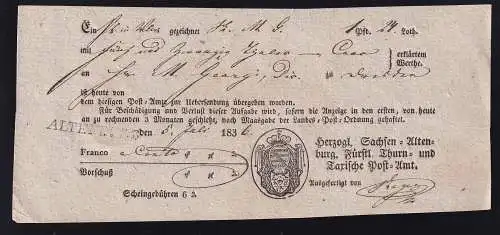 Ein gezeichnet K. M. G. 1 Pfd. 24. Loth.
mit fünf und Zwanzig Thaler — erklärtem
Werthe.
an Hr. M. Georgi, in Dresden
ist heute von
dem hiesigen Post-Amte zur Uebersendung übergeben worden.
Für Beschädigung und Verlust dieser Aufgabe wird, sofern die Anzeige in den ersten, von heute
an zu rechnenden 3 Monaten geschieht, nach Maasgabe der Landes-Post-Ordnung gehaftet.
ALTENBURG den 5. Juli 1836.
Franco
Vorschuß
Scheingebühren 6 ₰.
Herzogl. Sachsen-Alten-
burg. Fürstl. Thurn- und
Taxische Post-Amt.
Ausgefertigt von